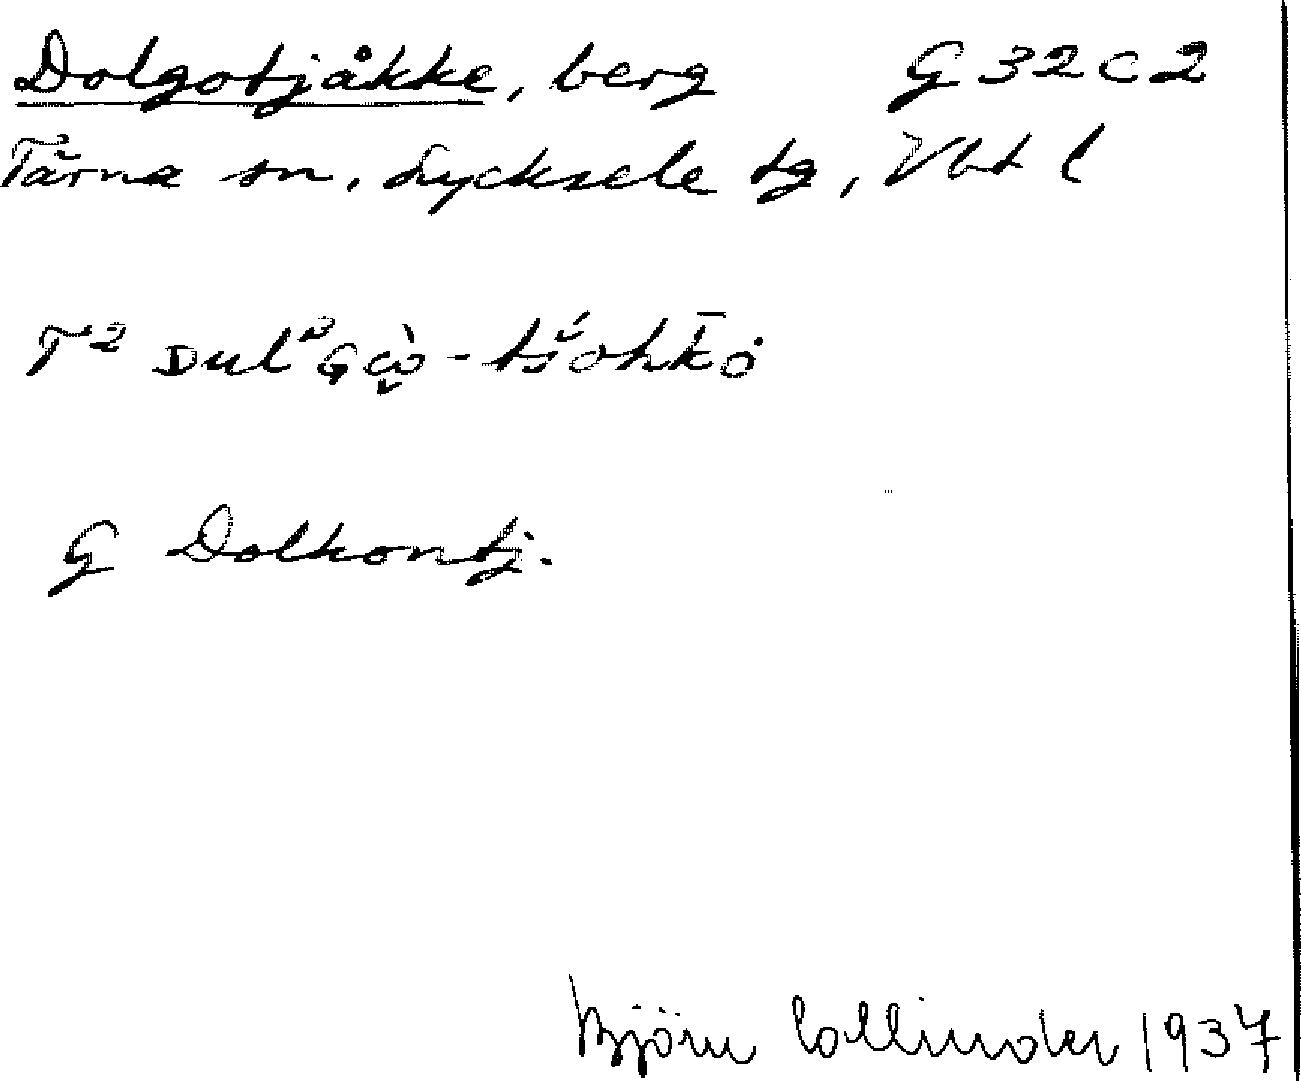 Dolgotjåkke, berg G 32 c 2
Tärna sn, Lycksele tg, Vbt l
T²
G Dolkontj.
Björn Collinder 1937